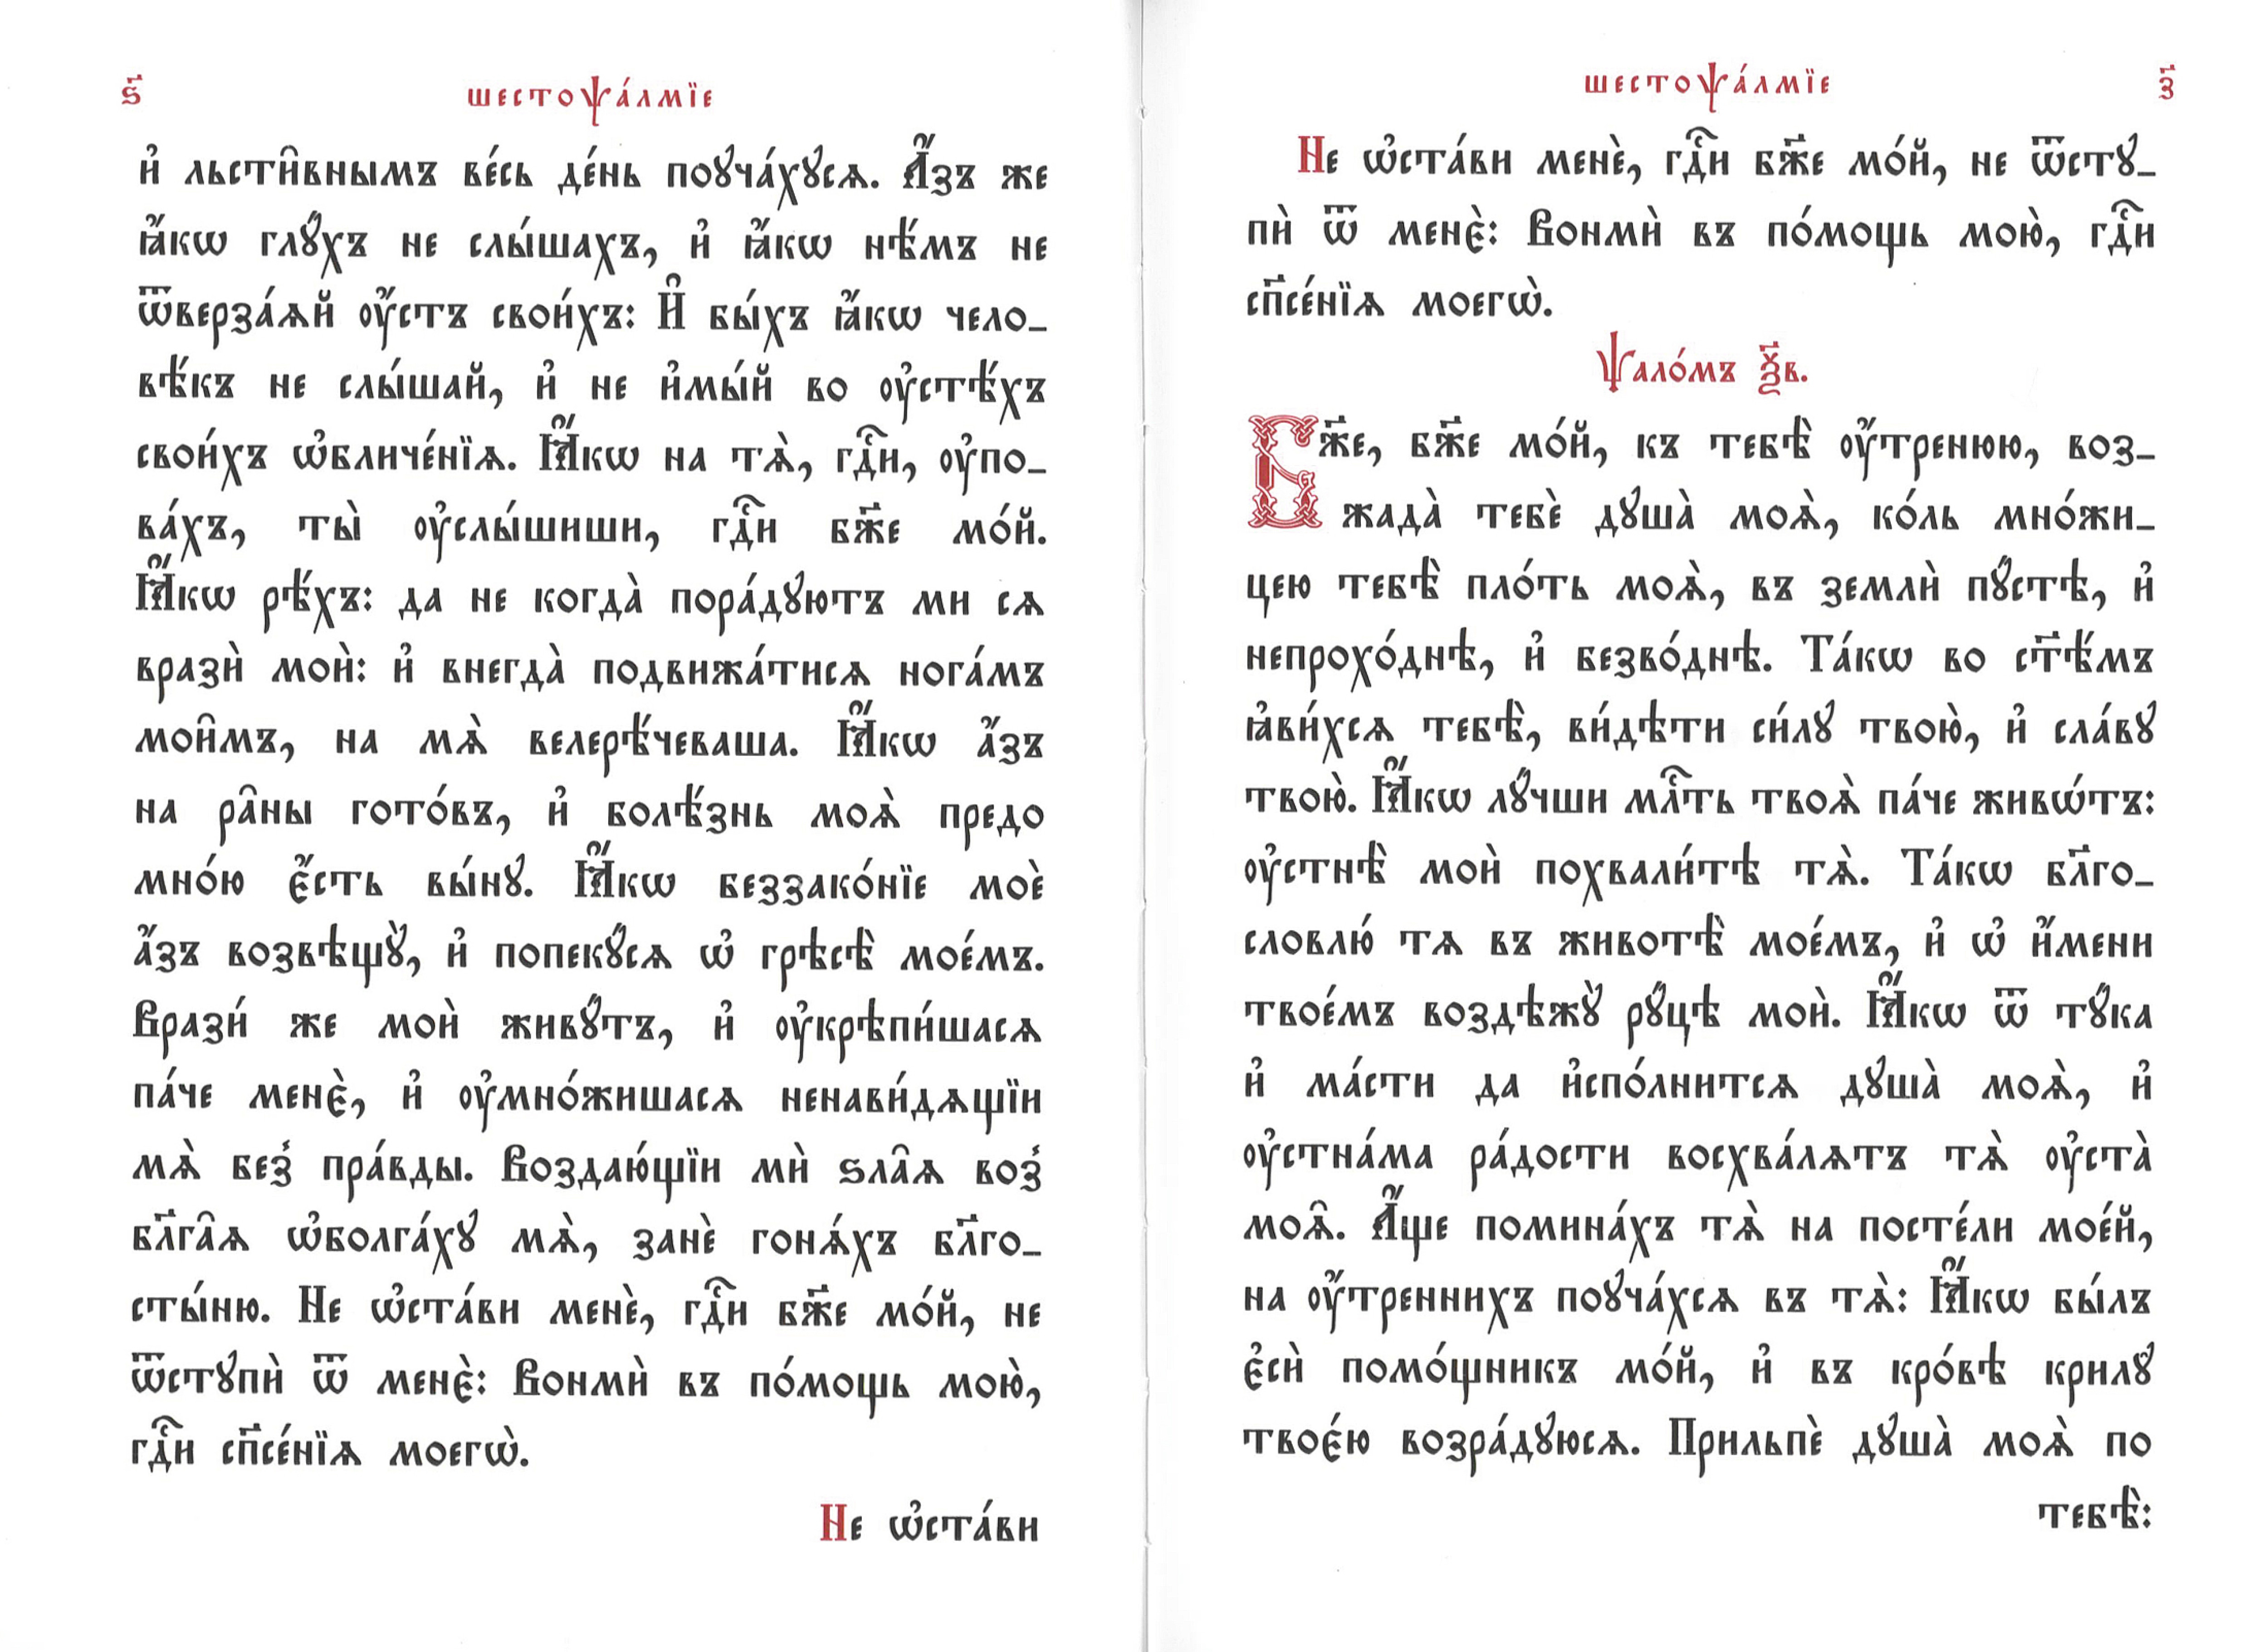 ѕ҃
шестоѱа́лмїе
и҆ льсти̑внымъ ве́сь де́нь поꙋча́хꙋсѧ. А҆́зъ же
ꙗ҆́кѡ глꙋ́хъ не слы́шахъ, и҆ ꙗ҆́кѡ нѣ́мъ не
ѿверза́ѧй ᲂу҆́стъ свои́хъ: И҆̑ бы́хъ ꙗ҆́кѡ чело_
вѣ́къ не слы́шай, и҆ не и҆мы́й во ᲂу҆стѣ́хъ
свои́хъ ѡ҆бличе́нїѧ. Ꙗ҆́кѡ на тѧ̀, гдⷭ҇и, ᲂу҆по_
ва́хъ, ты̀ ᲂу҆слы́шиши, гдⷭ҇и бж҃е мо́й.
Ꙗ҆́кѡ рѣ́хъ: да не когда̀ пора́дꙋютъ ми сѧ
врази̑ мои̑: и҆ внегда̀ подвижа́тисѧ нога́мъ
мои̑мъ, на мѧ̀ велерѣ́чеваша. Ꙗ҆́кѡ а҆́зъ
на ра̑ны гото́въ, и҆ болѣ́знь моѧ̀ предо
мно́ю є҆́сть вы́нꙋ. Ꙗ҆́кѡ беззако́нїе моѐ
а҆́зъ возвѣщꙋ̀, и҆ попекꙋ́сѧ ѡ҆ грѣсѣ̀ мое́мъ.
Врази́ же мои̑ живꙋ́тъ, и҆ ᲂу҆крѣпи́шасѧ
па́че менє̀, и҆ ᲂу҆мно́жишасѧ ненави́дѧщїи
мѧ̀ без̾ пра́вды. Воздаю́щїи ми̑ ѕла̑ѧ воз̾
бл҃га̑ѧ ѡ҆болга́хꙋ мѧ̀, занѐ гонѧ́хъ бл҃го_
сты́ню. Не ѡ҆ста́ви менѐ, гдⷭ҇и бж҃е мо́й, не
ѿстꙋпѝ ѿ менє̀: Вонмѝ въ по́мощь мою̀,
гдⷭ҇и сп҃се́нїѧ моегѡ̀.
Не ѡ҆ста́ви
шестоѱа́лмїе
з҃
Не ѡ҆ста́ви менѐ, гдⷭ҇и бж҃е мо́й, не ѿстꙋ_
пѝ ѿ менє̀: Вонмѝ въ по́мощь мою̀, гдⷭ҇и
сп҃се́нїѧ моегѡ̀.
Ѱало́мъ ѯ҃в.
Бж҃е, бж҃е мо́й, къ тебѣ̀ ᲂу҆́тренюю, воз_
жада̀ тебѐ дꙋша̀ моѧ̀, ко́ль мно́жи_
цею тебѣ̀ пло́ть моѧ̀, въ землѝ пꙋ́стѣ, и҆
непрохо́днѣ, и҆ безво́днѣ. Та́кѡ во ст҃ѣ́мъ
ꙗ҆ви́хсѧ тебѣ̀, ви́дѣти си́лꙋ твою̀, и҆ сла́вꙋ
твою̀. Ꙗ҆́кѡ лꙋ́чши млⷭ҇ть твоѧ̀ па́че живѡ́тъ:
ᲂу҆стнѣ̀ мои̑ похвали́тѣ тѧ̀. Та́кѡ бл҃го_
словлю́ тѧ въ животѣ̀ мое́мъ, и҆ ѡ҆ и҆́мени
твое́мъ воздѣжꙋ̀ рꙋ́цѣ мои̑. Ꙗ҆́кѡ ѿ тꙋ́ка
и҆ ма́сти да и҆спо́лнитсѧ дꙋша̀ моѧ̀, и҆
ᲂу҆стна́ма ра́дости восхва́лѧтъ тѧ̀ ᲂу҆ста̀
моѧ̑. А҆́ще помина́хъ тѧ̀ на посте́ли мое́й,
на ᲂу҆́треннихъ поꙋча́хсѧ въ тѧ̀: Ꙗ҆́кѡ бы́лъ
є҆сѝ помо́щникъ мо́й, и҆ въ кро́вѣ крилꙋ̑
твоє́ю возра́дꙋюсѧ. Прильпѐ дꙋша̀ моѧ̀ по
тебѣ̀: